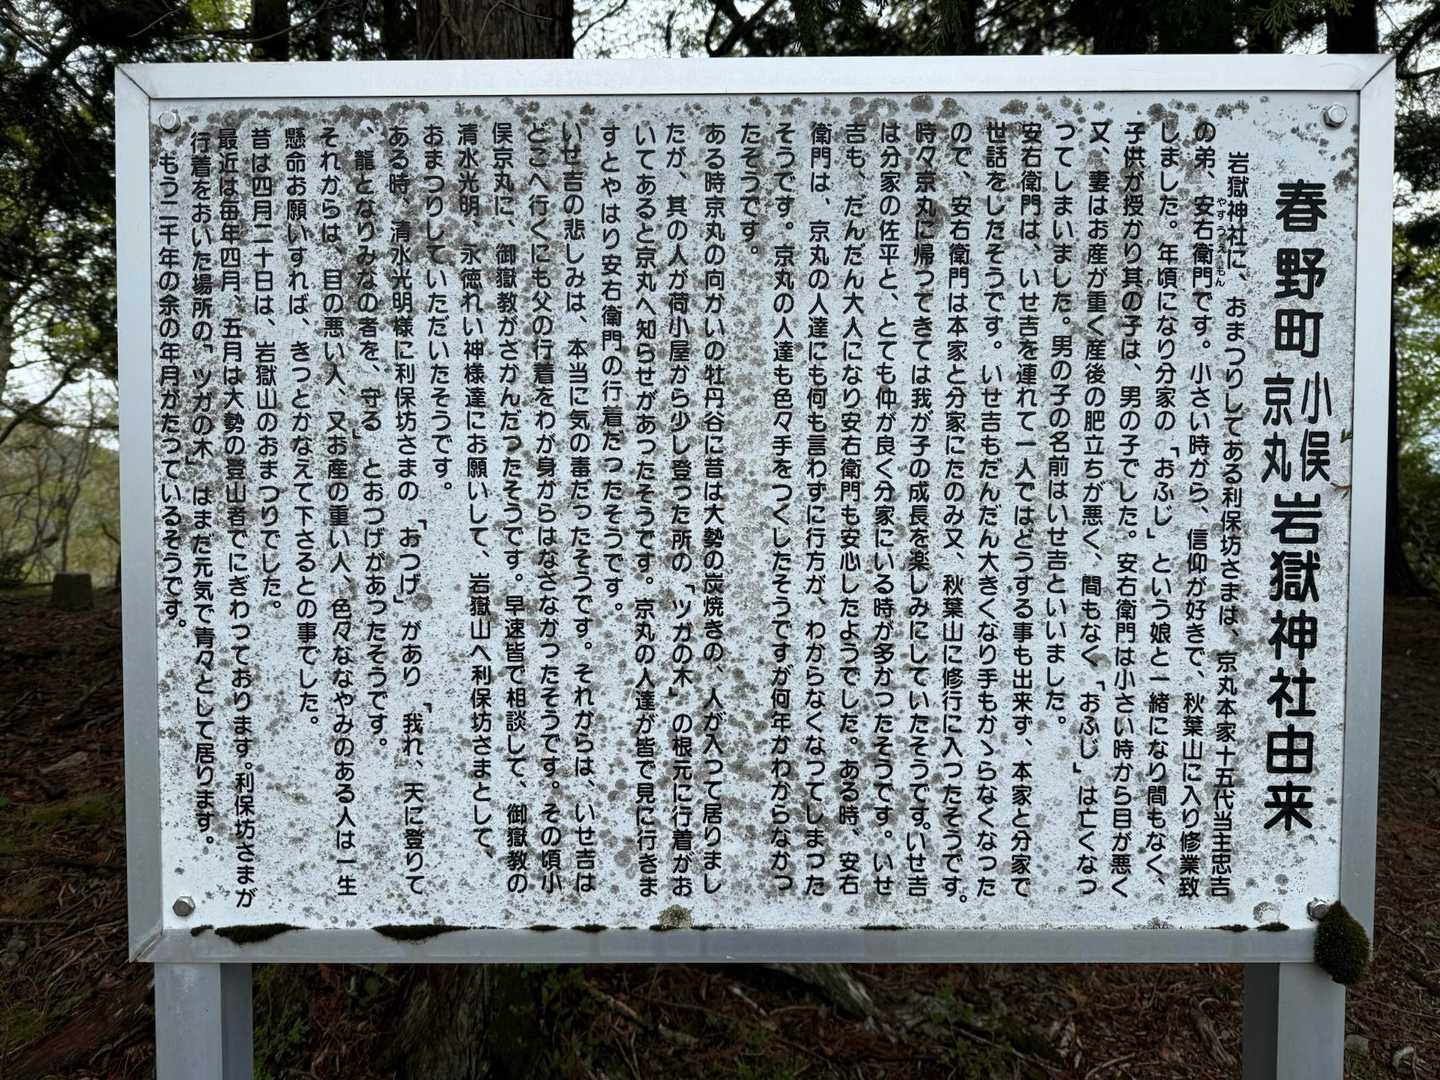 春野町 小俣京丸 岩嶽神社由来
岩嶽神社に、おまつりしてある利保坊さまは、京丸本家十五代当主忠吉
の弟、安右衛門です。小さい時から、信仰が好きで、秋葉山に入り修業致
やすうえもん
しました。年頃になり分家の「おふじ」という娘と一緒になり間もなく、
子供が授かり其の子は、男の子でした。安右衛門は小さい時から目が悪く
又、妻はお産が重く産後の肥立ちが悪く、間もなく「おふじ」は亡くなつ
つてしまいました。男の子の名前はいせ吉といいました。
安右衛門は、いせ吉を連れて一人ではどうする事も出来ず、本家と分家で
世話をしたそうです。いせ吉もだんだん大きくなり手もかゝらなくなった
ので、安右衛門は本家と分家にたのみ又、秋葉山に修行に入つたそうです。
時々京丸に帰つてきては我が子の成長を楽しみにしていたそうです。いせ吉
は分家の佐平と、とても仲が良く分家にいる時が多かつたそうです。いせ
吉も、だんだん大人になり安右衛門も安心したようでした。ある時、安右
衛門は、京丸の人達にも何も言わずに行方が、わからなくなつてしまった
そうです。京丸の人達も色々手をつくしたそうですが何年かわからなかつ
たそうです。
ある時京丸の向かいの牡丹谷に昔は大勢の炭焼きの、人が入つて居りまし
たが、其の人が荷小屋から少し登った所の「ツガの木」の根元に行着がお
いてあると京丸へ知らせがあつたそうです。京丸の人達が皆で見に行きま
すとやはり安右衛門の行着だったそうです。
いせ吉の悲しみは、本当に気の毒だったそうです。それからは、いせ吉は
どこへ行くにも父の行着をわが身からはなさなかつたそうです。その頃小
俣京丸に、御嶽教がさかんだったそうです。早速皆で相談して、御嶽教の
清水光明、永徳れい神様達にお願いして、岩嶽山へ利保坊さまとして、
おまつりしていただいたそうです。
ある時、清水光明様に利保坊さまの「おつげ」があり「我れ、天に登りて
、龍となりみなの者を、守る」とおつげがあったそうです。
それからは、目の悪い人、又お産の重い人、色々ななやみのある人は一生
懸命お願いすれば、きつとかなえて下さるとの事でした。
昔は四月二十日は、岩嶽山のおまつりでした。
最近は毎年四月、五月は大勢の登山者でにぎわつております。利保坊さまが
行着をおいた場所の「ツガの木」はまだ元気で青々として居ります。
もう二千年の余の年月がたつているそうです。